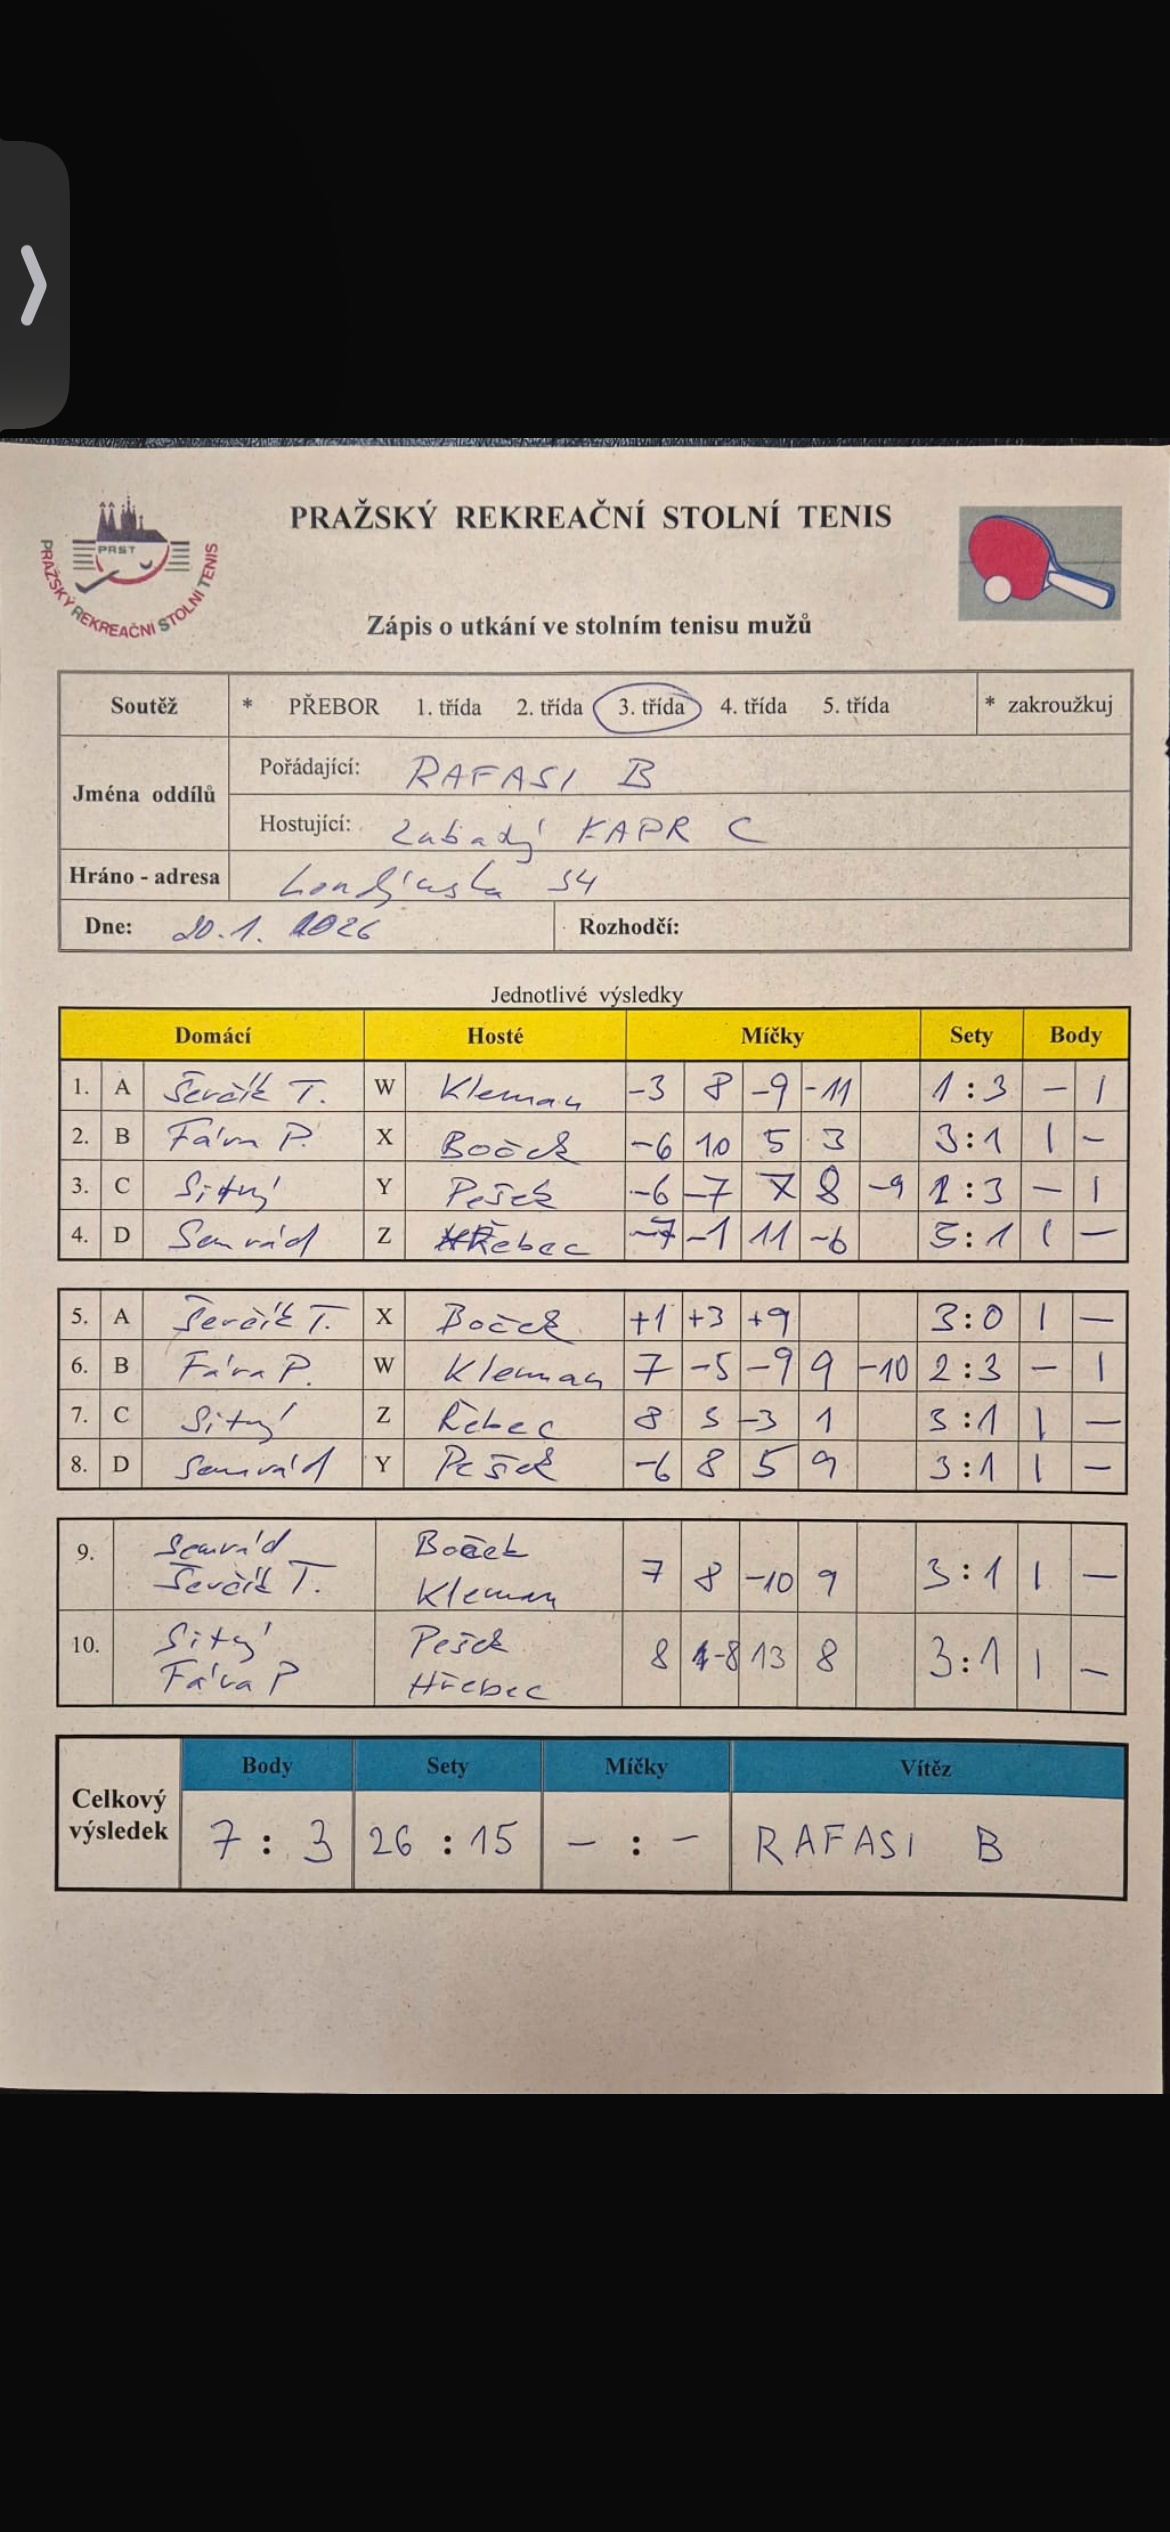 PRAŽSKÝ REKREAČNÍ STOLNÍ TENIS
PRST
PRAŽSKÝ REKREAČNÍ STOLNÍ TENIS
Zápis o utkání ve stolním tenisu mužů
Soutěž * PŘEBOR 1. třída 2. třída 3. třída 4. třída 5. třída * zakroužkuj
Jména oddílů
Pořádající: RAFASI B
Hostující: Zabadý KAPR C
Hráno - adresa Londýnska 34
Dne: 20.1. 2026 Rozhodčí:
Jednotlivé výsledky
Domácí Hosté Míčky Sety Body
1. A Ševčík T. W Kleman -3 8 -9 -11 1:3 - 1
2. B Fára P. X Boček -6 10 5 3 3:1 1 -
3. C Sitný Y Pešek -6 -7 7 8 -9 2:3 - 1
4. D Semrád Z Řebec -7 -1 11 -6 3:1 1 -
5. A Ševčík T. X Boček +1 +3 +9 3:0 1 -
6. B Fára P. W Kleman 7 -5 -9 9 -10 2:3 - 1
7. C Sitný Z Řebec 8 5 -3 1 3:1 1 -
8. D Semrád Y Pešek -6 8 5 9 3:1 1 -
9. Semrád Boček
Ševčík T. Kleman 7 8 -10 9 3:1 1 -
10. Sitný Pešek
Fára P Hřebec 8 -8 13 8 3:1 1 -
Celkový výsledek
Body Sety Míčky Vítěz
7 : 3 26 : 15 - : - RAFASI B